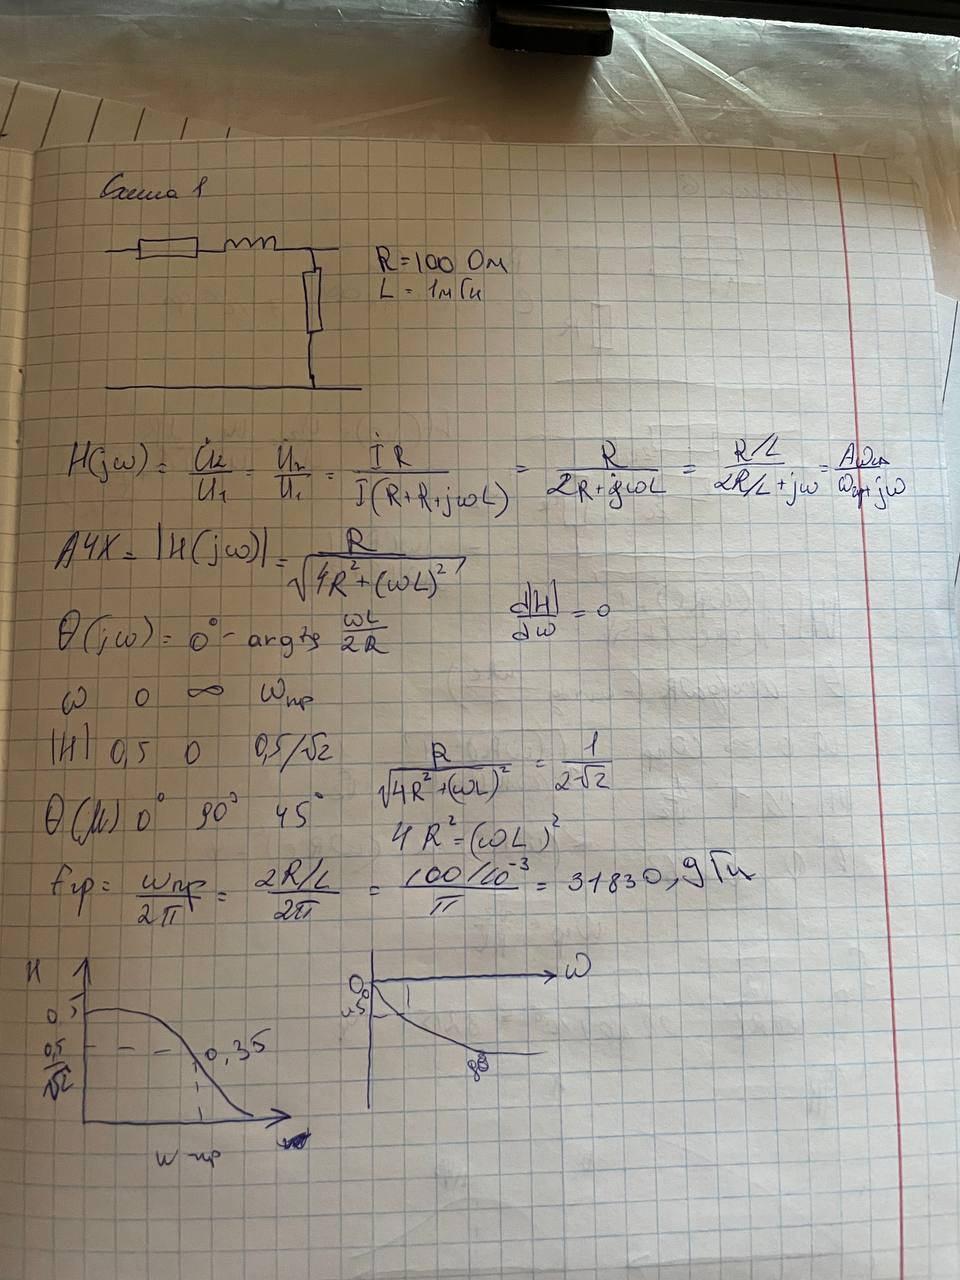 Схема 1
R=100 Ом
L = 1мГн
H(jω) = U̇2/U̇1 = U̇R/U̇1 = İR/İ(R+R+jωL) = R/2R+jωL = R/L/2R/L+jω = Aωпр/ωпр+jω
АЧХ = |H(jω)| = R/√4R²+(ωL)²
d|H|/dω = 0
Θ(jω) = 0° - argtg ωL/2R
ω 0 ∞ ωпр
|H| 0,5 0 0,5/√2
R/√4R²+(ωL)² = 1/2√2
0° 90° 45°
4R²=(ωL)²
Fгр = ωпр/2π = 2R/L/2π = 100/10⁻³/π = 31830,9 Гц
H
0,5
0,5/√2
0,35
ω пр
0
ω
45
90